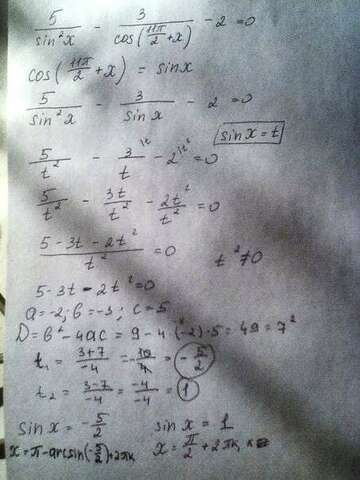 5/sin²x - 3/cos(11π/2 + x) - 2 = 0
cos(11π/2 + x) = sinx
5/sin²x - 3/sinx - 2 = 0
sinx = t
5/t² - 3/t - 2 = 0
5/t² - 3t/t² - 2t²/t² = 0
5 - 3t - 2t²/t² = 0 t² ≠ 0
5 - 3t - 2t² = 0
a = -2; b = -3; c = 5
D = b² - 4ac = 9 - 4·(-2)·5 = 49 = 7²
t₁ = 3+7/-4 = -10/4 = -5/2
t₂ = 3-7/-4 = -4/-4 = 1
sinx = -5/2 sinx = 1
x = π - arcsin(-5/2) + 2πk x = π/2 + 2πk, k